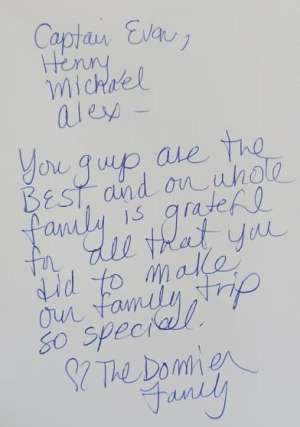 Captain Evan,
Henny
Michael
Alex -
You guys are the
BEST and our whole
family is grateful
for all that you
did to make
our family trip
so special.
♡ The Donnier
Family